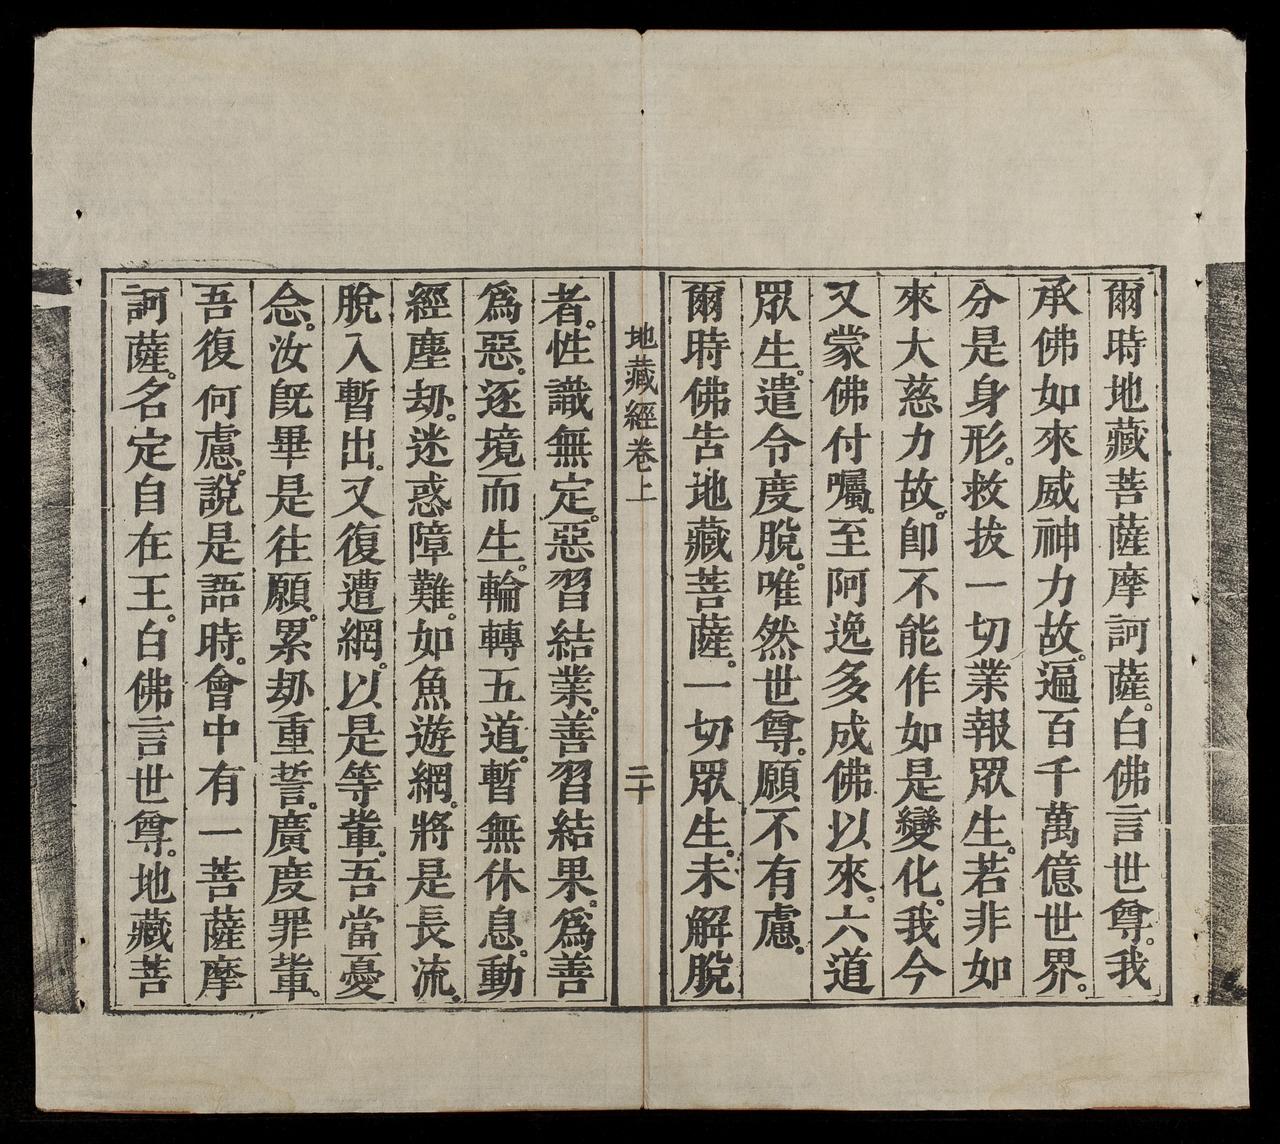 爾時地藏菩薩摩訶薩。白佛言世尊。我
承佛如來威神力故。遍百千萬億世界。
分是身形。救拔一切業報眾生。若非如
來大慈力故。即不能作如是變化。我今
又蒙佛付囑。至阿逸多成佛以來。六道
眾生。遣令度脫。唯然世尊。願不有慮。
爾時佛告地藏菩薩。一切眾生。未解脫
地藏經卷上
二十
者。性識無定。惡習結業。善習結果。爲善
爲惡。逐境而生。輪轉五道。暫無休息。動
經塵劫。迷惑障難。如魚遊網。將是長流。
脫入暫出。又復遭網。以是等輩。吾當憂
念。汝旣畢是往願。累劫重誓。廣度罪輩。
吾復何慮。說是語時。會中有一菩薩摩
訶薩。名定自在王。白佛言世尊。地藏菩